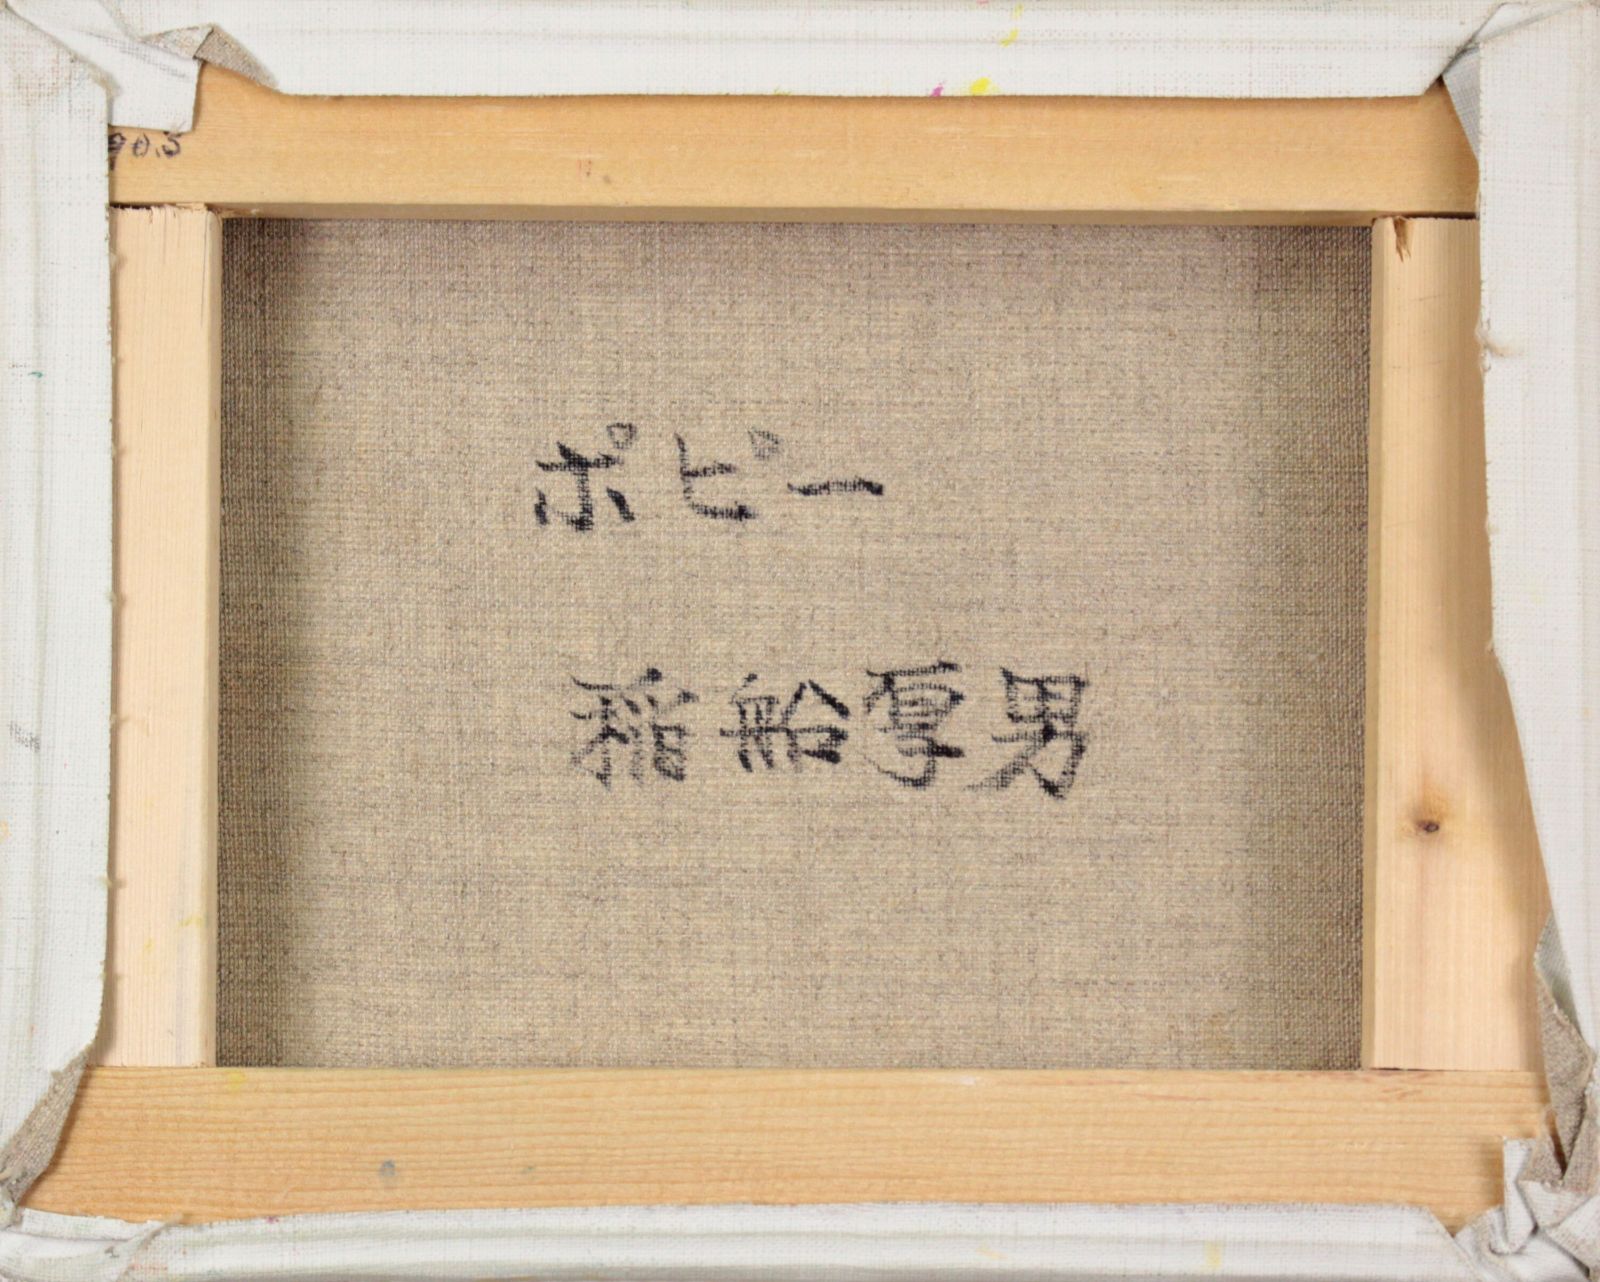 90.5
ポピー
稲船厚男